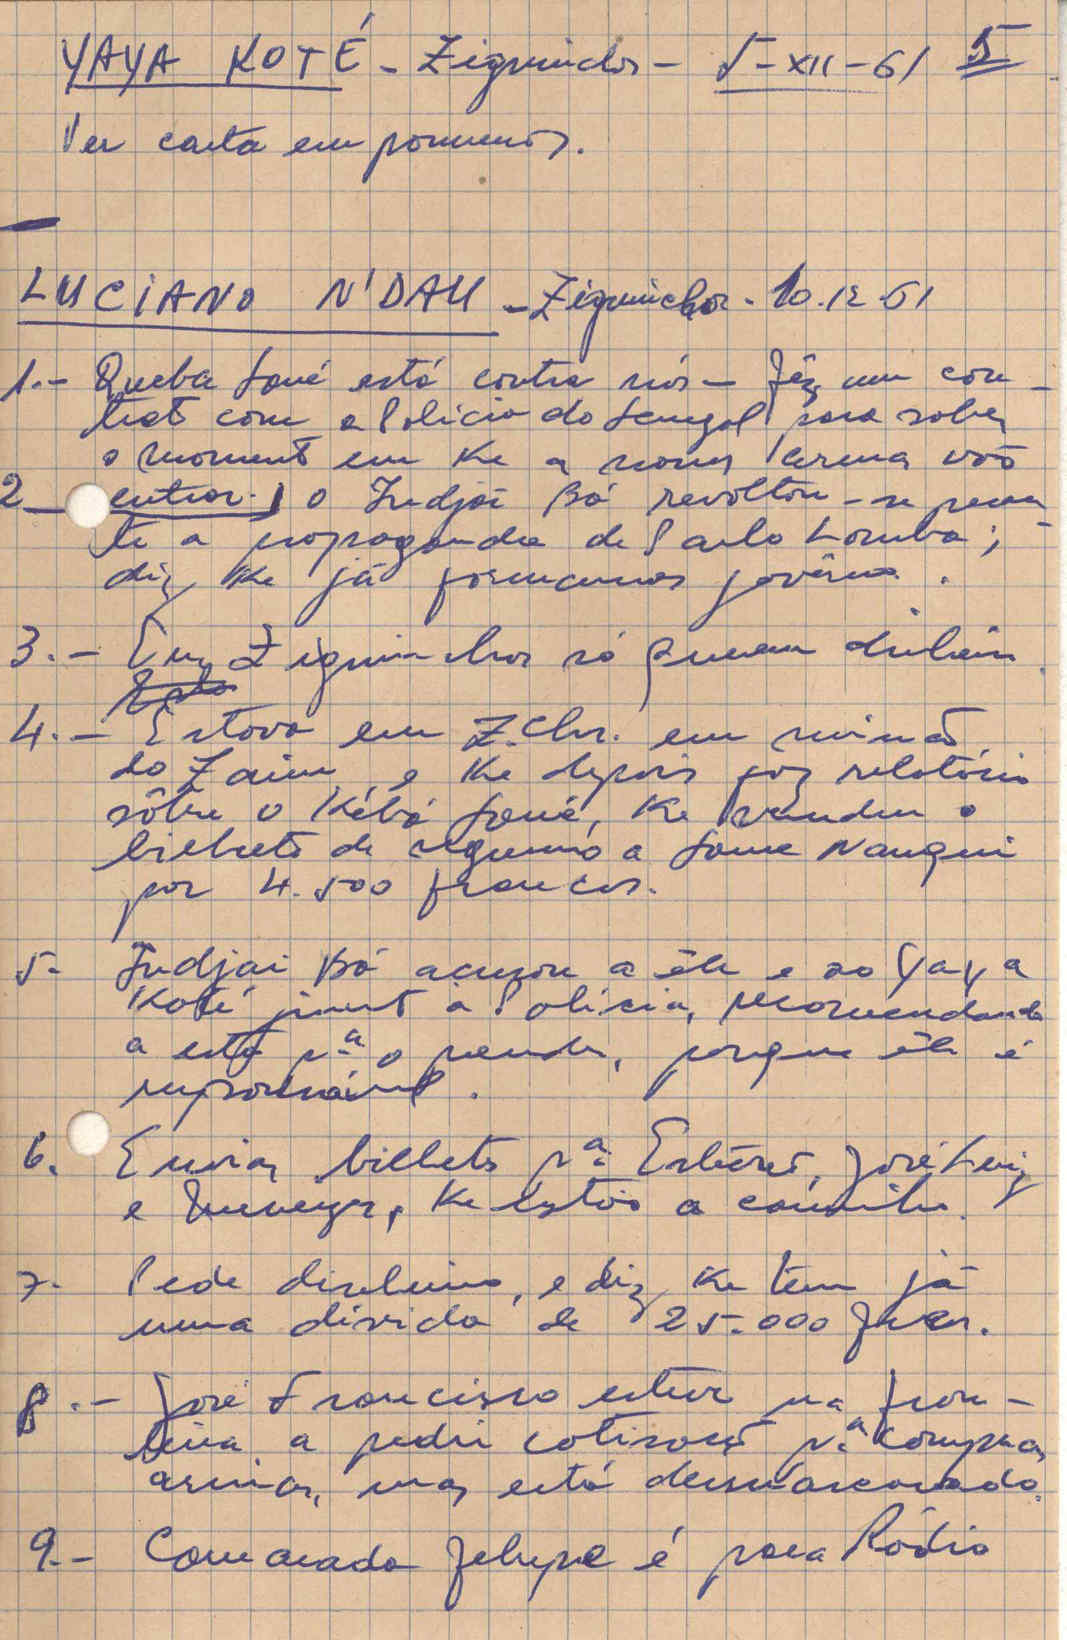 YAYA KOTÉ - Ziguinchor - 5-XII-61 5
Ver carta em pormenor.
LUCIANO N'DAU - Ziguinchor - 10.12.61
1.- Queba Sané está contra nós - fêz um con-
trat com a Polícia do Senegal para saber
o moment em ke a nossas armas vão
2_ entrar.) o Indjai Bá revoltou-se peran-
te a propaganda de Paulo Lomba;
diz ke já formamos govêrno.
3.- Em Ziguinchor só querem dinheiro.
4.- Estava em Z.Chr. em missão
do Zain, e ke depois foz relatório
sôbre o Kébá Sané, ke vendeu o
bilhete de a Sane Nanqui
por 4.500 francos.
5- Indjai Bá acusou a êle e ao Yaya
Koté junt à Polícia, recomendando
a esta pª o prender, porque êle é
responsável.
6. Enviar bilhets pª Estêvão, José Luiz
e ke estão a caminho.
7- Pede dinheiro, e diz ke tem já
uma dívida de 25.000 frcs.
8.- José Francisco esteve na fron-
teira a pedir cotisaçõ pª comprar
armas, mas está desmascarado.
9.- Camarada Felupe é para Rádio